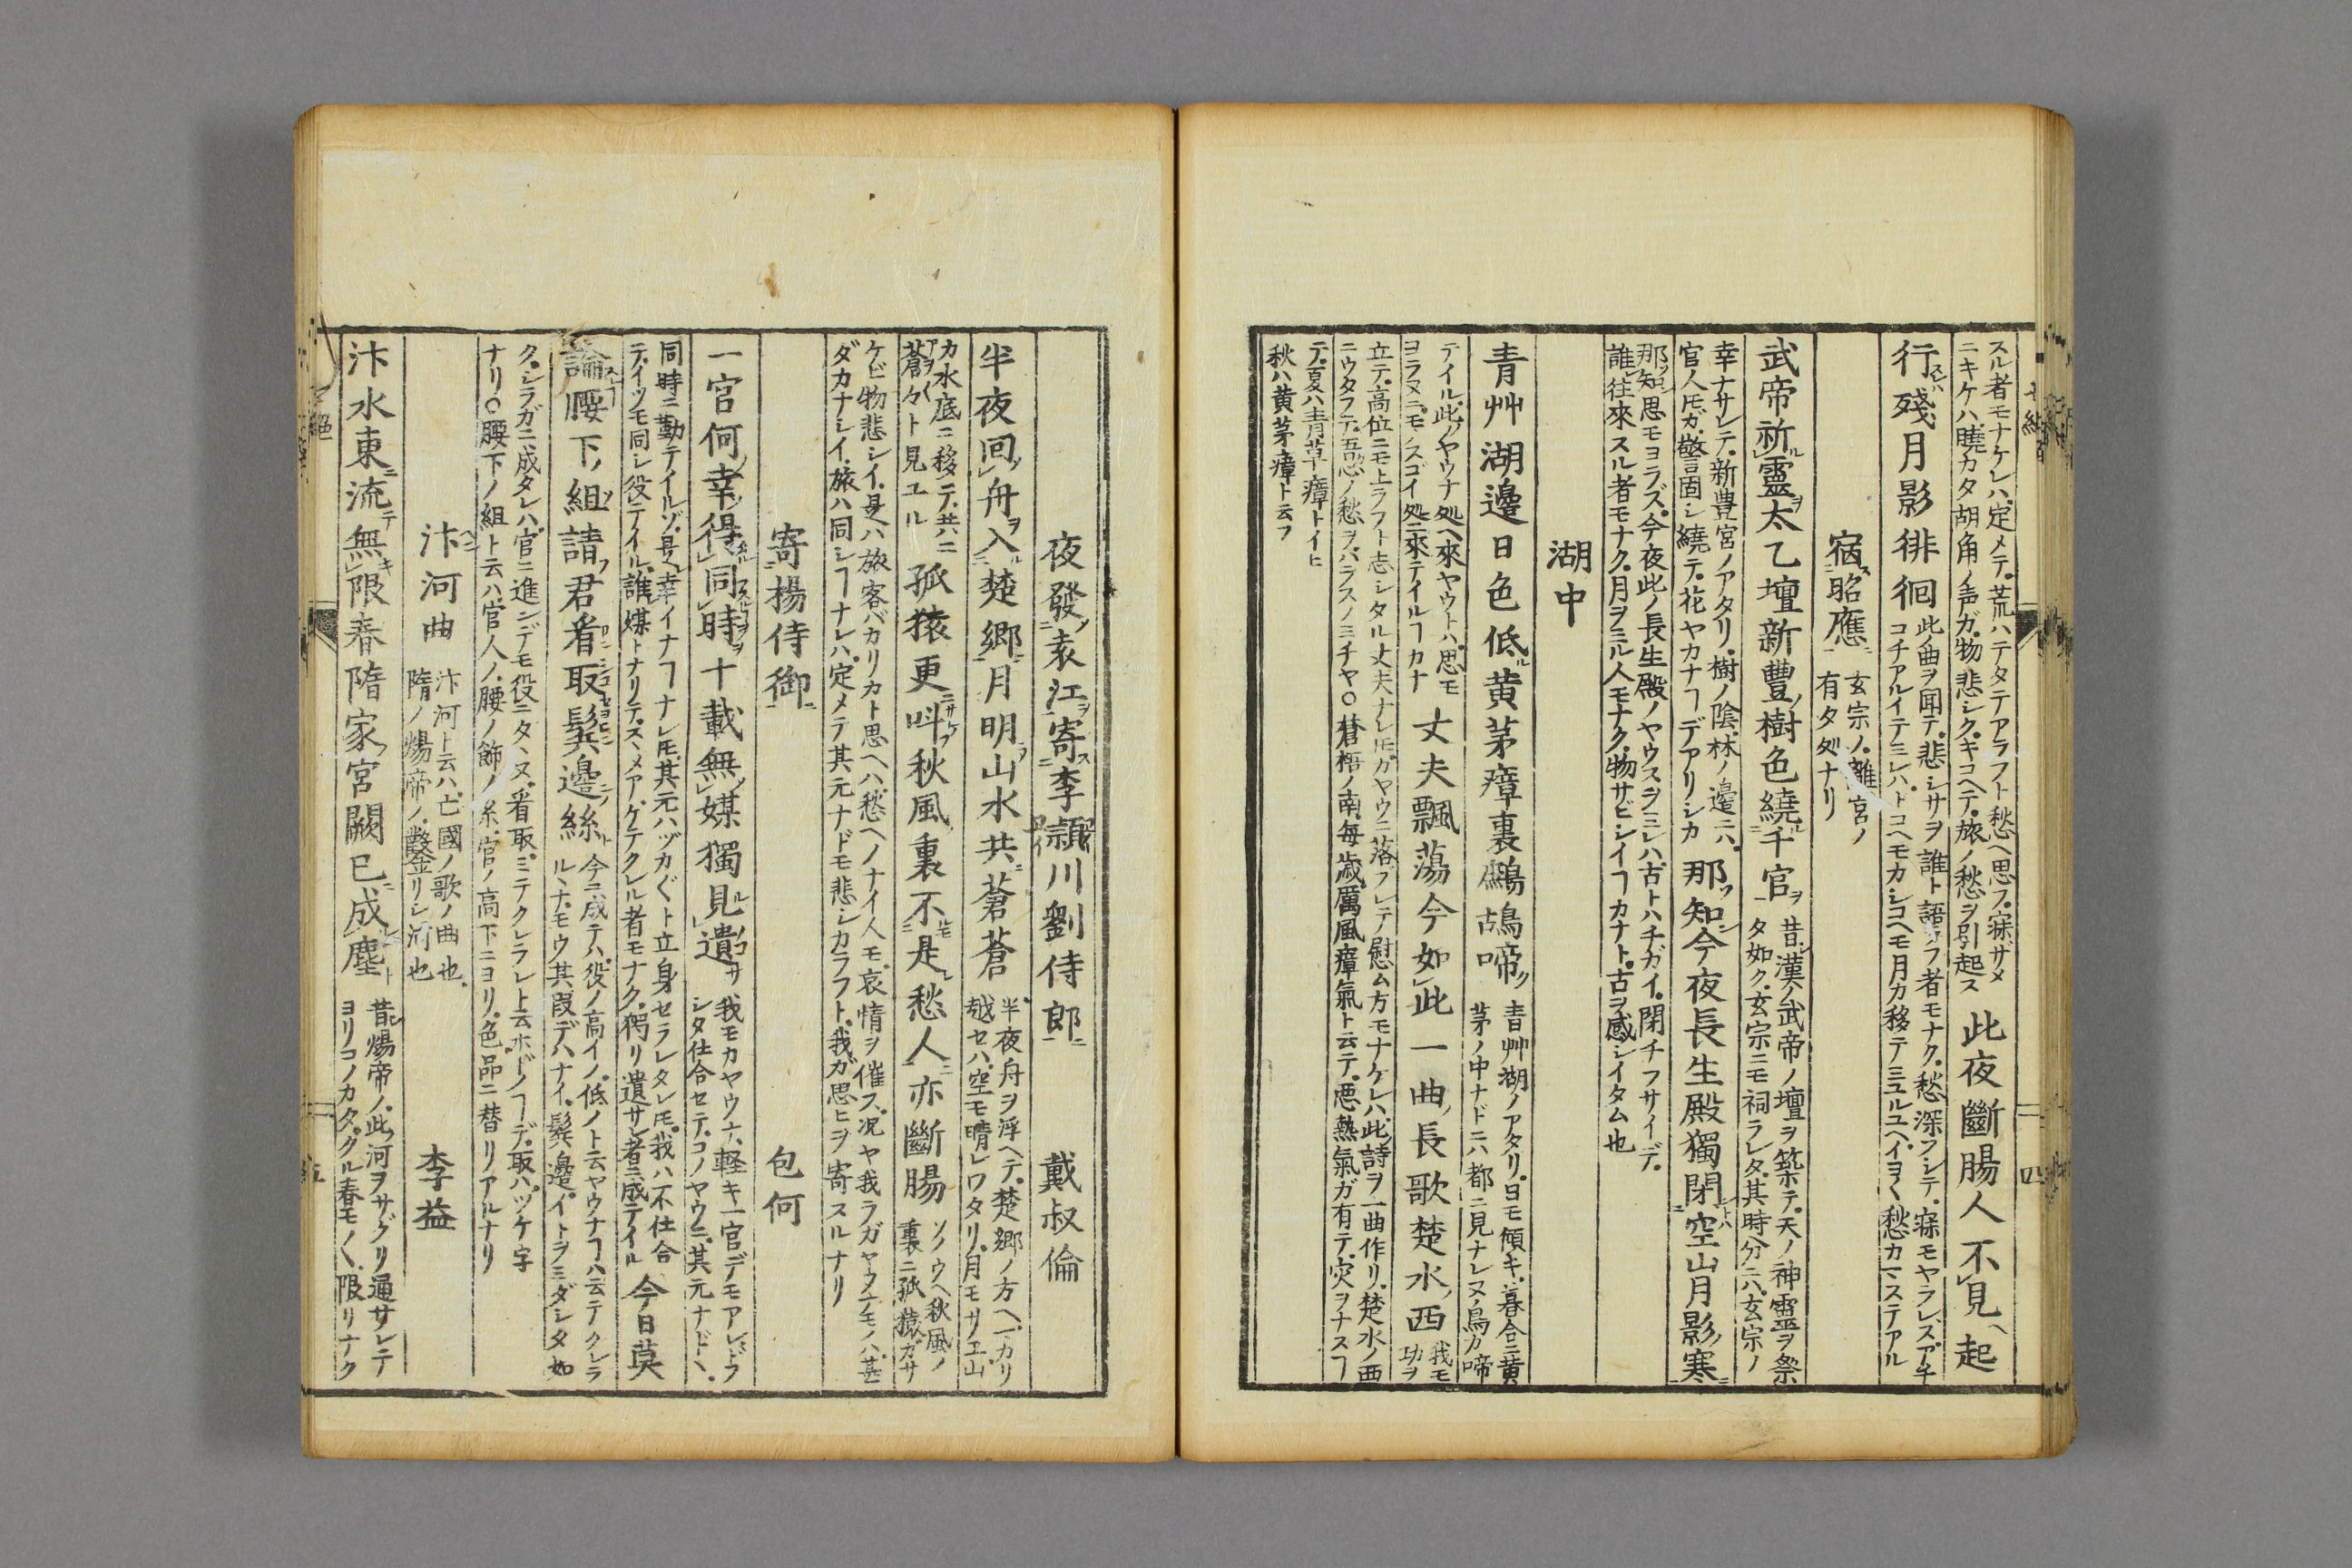 スル者モナケレハ、定メテ、荒ハテタテアラフト愁ヘ思フ、寐ザメ
ニキケハ、曉カタ胡角ノ声ガ、物悲シク、キコヘテ、旅ノ愁ヲ引起ス
此夜斷腸人不見起
行殘月影徘徊
此ノ曲ヲ聞テ、悲シサヲ誰ト語ラフ者モナク、愁深フシテ、寐モヤラレズ、アチ
コチアルイテミレハ、ドコヘモカシコヘモ月カ移テミユルユヘ、イヨ〱愁カマステアル
宿昭應
玄宗ノ、離宮ノ
有タ処ナリ
武帝祈靈太乙壇新豐樹色繞千官
昔シ漢ノ武帝ノ壇ヲ築テ、天ノ神靈ヲ祭
タ如ク、玄宗ニモ祠ラレタ、其時分ニハ、玄宗ノ
幸ナサレテ、新豊宮ノアタリ、樹ノ陰、林ノ邊ニハ、
官人𪜈ガ、警固シ繞テ、花ヤカナヿデアリシカ
那知今夜長生殿獨閉空山月影寒
那ッ知思モヨラズ、今夜此ノ長生殿ノヤウスヲミレハ、古トハチガイ、閉チフサイデ、
誰レ往來スル者モナク、月ヲミル人モナク、物サビシイヿカナト、古ヲ感シイタム也
湖中
青艸湖邊日色低黄茅瘴裏鷓鴣啼
青艸湖ノアタリ、日モ傾キ、暮合ニ黄
茅ノ中ナドニハ都ニ見ナレヌ、鳥カ啼
テイル、此ノヤウナ処ヘ來ヤウトハ、思モ
ヨラヌニ、モノスゴイ処ニ來テイルヿカナ
丈夫飄蕩今如此一曲長歌楚水西
我モ
功ヲ
立テ、高位ニモ上ラフト志シタル丈夫ナレ𪜈、カヤウニ落フレテ慰ム方モナケレハ、此ノ詩ヲ一曲作リ、楚水ノ西
ニウタフテ、吾カ愁ヲ、ハラスノミチヤ○蒼梧ノ南、毎歳厲風瘴氣ト云テ、悪熱氣ガ有テ、災ヲナスヿ
テ、夏ハ青草瘴トイヒ
秋ハ黄茅瘴ト云フ
夜發袁江寄李潁川劉侍郎
戴叔倫
半夜回舟入楚郷月明山水共蒼蒼
半夜舟ヲ浮ヘテ、楚郷ノ方ヘ、カリ
越セハ、空モ晴レワタリ、月モサエ山
カ水底ニ移テ、共ニ
蒼々ト見ユル
孤猿更呌秋風裏不是愁人亦斷腸
ソノウヘ秋風ノ
裏ニ孤猿ガサ
ケビ物悲シイ、是ハ旅客バカリカト思ヘハ、愁ヘノナイ人モ、哀情ヲ催ス、况ヤ我ラガヤウナモノハ、甚
ダカナシイ、旅ハ同シヿナレハ、定メテ其元ナドモ悲シカラフト、我ガ思ヒヲ寄スルナリ
寄楊侍御
包何
一官何幸得同時十載無媒獨見遺
我モカヤウナ、軽キ一官デモアレドフ
シタ仕合セテ、コノヤウニ、其元ナドヽ、
同時ニ勤テイルゾ、是ハ幸イナヿナレ𪜈、其元ハ、ツカ〲ト立身セラレタレ𪜈、我ハ不仕合
テ、イツモ同シ役テイル、誰媒トナリテ、スヽメアケテクレル者モナク、獨リ遺サレ者ニ成テイル
今日莫
論腰下組請君看取鬂邊絲
今ニ成テハ、役ノ高イノ、低ノト云ヤウナヿハ云テクレラ
ルヽナ、モウ其段デハナイ、鬂ノ邊、イトヲミダシタ如
ク、シラガニ成タレハ、官ニ進ンデモ役ニタヽヌ、看取、ミテクレラレト云ホドノヿデ、取ハ、ツケ字
ナリ○腰下ノ組ト云ハ、官人ノ、腰ノ飾ノ糸、官ノ高下ニヨリ、色品ニ替リアルナリ
汴河曲
汴河ト云ハ、亡國ノ歌ノ曲也、
隋ノ煬帝ノ、鑿リシ河也
李益
汴水東流無限春隋家宮闕已成塵
昔シ煬帝ノ、此ノ河ヲサグリ通サレテ
ヨリコノカタ、クル春モ〱、限リナク